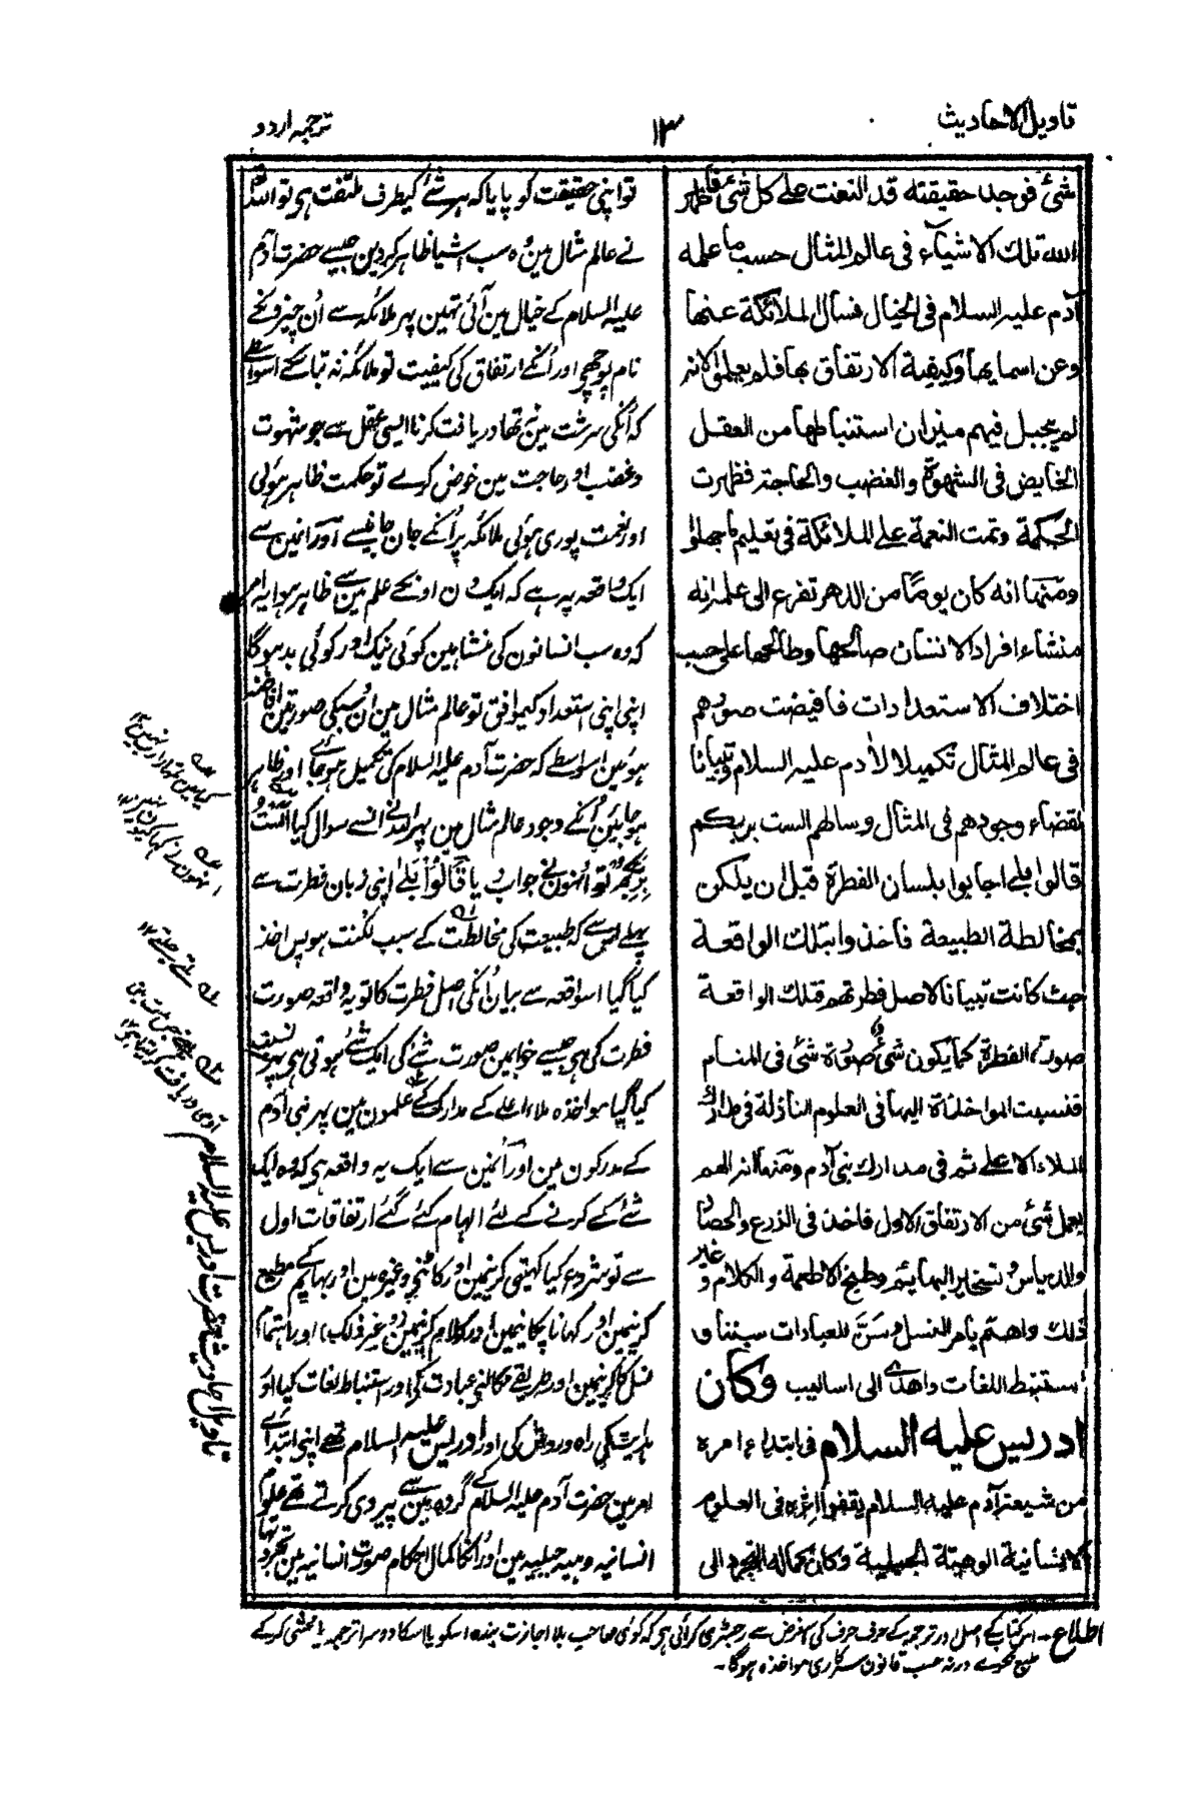 تاویل الاحادیث
۱۳
ترجمہ اردو
شئ فوجد حقیقته قد التفت علے کل شئ فاظهر
الله تلك الاشیآء فی عالم المثال حسب ما علمه
آدم علیه السلام فی الخیال فسال الملائکة عنها
وعن اسمایها وکیفیة الارتفاق بها فلم یعلموا لانه
لم یجبل فیهم میزان استنباطها من العقل
الخایض فی الشهوة والغضب والحاجة فظهرت
الحکمة وتمت النعمة علے الملائکة فی تعلیم ما جهلوا
ومنها انه کان یوما من الدهر تفرع الی علم انه
منشاء افراد الانسان صالحها وطالحها علی حسب
اختلاف الاستعدادات فافیضت صورهم
فی عالم المثال تکمیلا لاٰدم علیه السلام وتبیانا
لقضاء وجودهم فی المثال وسالهم الست بربکم
قالوا بلے اجابوا بلسان الفطرة قبل ان یلکن
بمخالطة الطبیعة فاخذوا بتلك الواقعة
حیث کانت تبیانا لاصل فطرتهم فتلك الواقعة
صورة الفطرة کما یکون شئ صورة شئ فی المنام
فنسبت المواخذة الیها فی العلوم النازلة فی مدارك
الملاء الاعلے ثم فی مدارك بنی آدم ومنها انه الهم
بعمل شئ من الارتفاق الاول فاخذ فی الزرع والحصاد
والدیاس وتسخیر البهایم وطبخ الاطعمة والکلام وغیر
ذلك واهتم بامر النسل وسَنَّ للعبادات سننا و
استنبط اللغات واهدے الی اسالیب وکان
ادریس علیه السلام فی ابتداء امره
من شیعة آدم علیه السلام یقفوا اثره فی العلوم
الانسانیة الوهبیة الجبلیة وکان کماله التجرد الی
تو اپنی حقیقت کو پایا کہ ہر شئے کیطرف ملتفت ہی تو اللہ
نے عالم مثال مین وہ سب اشیا ظاہر کر دین جیسے حضرت آدم
علیہ السلام کے خیال مین آئی تہین پہر ملائکہ سے اُن چیزونکے
نام پوچھے اور اُنکے ارتفاق کی کیفیت تو ملائکہ نہ بتا سکے اسواسطے
کہ اُنکی سرشت مین نہ تھا دریافت کرنا ایسی عقل سے جو شہوت
و غضب اور حاجت مین خوض کرے تو حکمت ظاہر ہوئی
اور نعمت پوری ہوئی ملائکہ پر اُنکے جان جانیسے اور انہین سے
ایک واقعہ یہ ہے کہ ایک دن اونکے علم مین سے ظاہر ہوا یہ امر
کہ وہ سب انسانون کی منشا ہین کوئی نیک اور کوئی بد ہوگا
اپنی اپنی استعداد کیموافق تو عالم مثال مین ان سبکی صورتین
ہوئین اسواسطے کہ حضرت آدم علیہ السلام کی تکمیل ہو جائے اور ظاہر
ہو جاین اُنکے وجود عالم مثال مین پہر اللہ نے انسے سوال کیا اَلَسْتُ
بِرَبِّکُمْ تو اُنہون نے جواب دیا قَالُوْا بَلٰے اپنی زبان فطرت سے
پہلے اس سے کہ طبیعت کی مخالطت کے سبب لکنت ہو پس اخذ
کیا گیا اس واقعہ سے بیان اُنکی اصل فطرت کا تو یہ واقعہ صورت
فطرت کی ہی جیسے خواب مین صورت شئے کی ایک شئے ہوتی ہی پہر نسبت
کیا گیا مواخذہ ملاء اعلے کے مدارک کے علمون مین پہر بنی آدم
کے مدرکون مین اور اُنمین سے ایک یہ واقعہ ہی کہ وہ ایک
شئے کے کرنے کے لئے الہام کئے گئے ارتفاقات اول
سے تو شروع کیا کہیتی کرنیمین اور کاٹنے وغیرہ مین اور بہایم کے مطیع
کرنیمین اور کہانا پکانیمین اور کلام کرنیمین وغیر ذلک اور اہتمام
نسل کا کرنیمین اور طریقے نکالنے عبادت کے اور استنباط لغات کیا اور
ہدایت کی راہ و روش کی اور ادریس علیہ السلام تھے اپنی ابتدائے
امر مین حضرت آدم علیہ السلام کے گروہ مین سے پیروی کرتے تھے علوم
انسانیہ وہبیہ جبلیہ مین اور اُنکا کمال احکام صورت انسانیہ مین تجرد تھا
تاویل احادیث حضرت ادریس علیہ السلام
اطلاع۔ اس کتاب کے اصل و ترجمہ کے حرف حرف کی بغرض سے رجسٹری کرائی ہی کہ کوئی صاحب بلا اجازت بندہ اسکو یا اسکا دوسرا ترجمہ یا محشی کر کے
طبع نکرے ورنہ حسب قانون سرکاری مواخذہ ہوگا۔